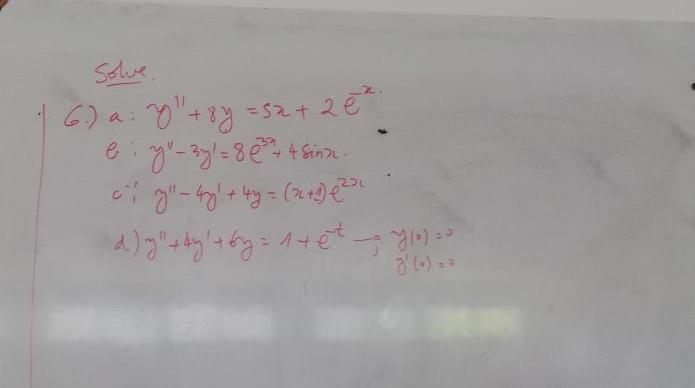 Solve.
6.) a: y'' + 8y = 5x + 2e^-x.
b: y'' - 3y' = 8e^3x + 4 sinx.
c: y'' - 4y' + 4y = (x+1)e^2x
d) y'' + 4y' + 6y = 1 + e^-t ; y(0) = 0
y'(0) = 0